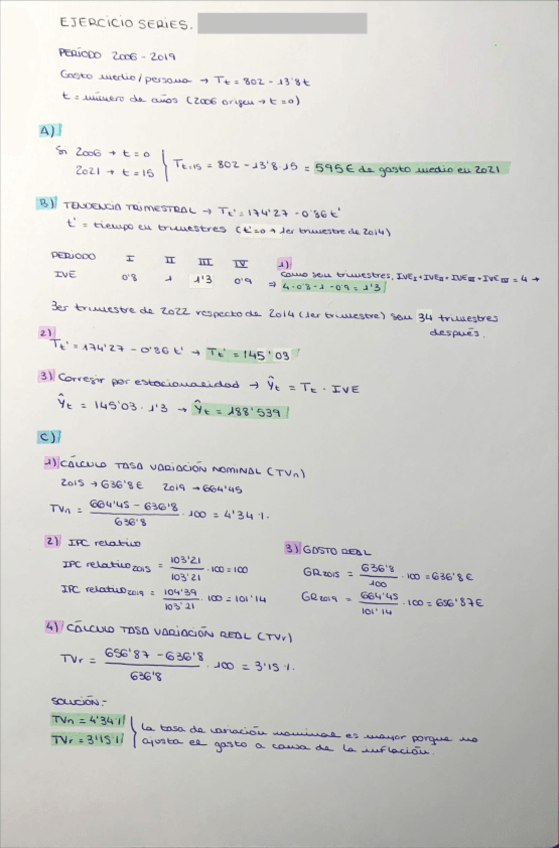 EJERCICIO SERIES.
PERÍODO 2006 - 2019
Gasto medio/persona → Tt = 802 - 13'8t
t = número de años (2006 origen → t=0)
A)
Si 2006 → t=0
2021 → t=15
Tt=15 = 802 - 13'8·15 = 595€ de gasto medio en 2021
B) TENDENCIA TRIMESTRAL → Tt' = 174'27 - 0'86 t'
t' = tiempo en trimestres (t'=0 → 1er trimestre de 2014)
PERÍODO I II III IV
IVE 0'8 1 1'3 0'9
1) Como son trimestres, IVEI + IVEII + IVEIII + IVEIV = 4 →
⇒ 4 - 0'8 - 1 - 0'9 = 1'3
3er trimestre de 2022 respecto de 2014 (1er trimestre) son 34 trimestres
después.
2)
Tt' = 174'27 - 0'86 t' → Tt' = 145'03
3) Corregir por estacionalidad → Ŷt = Tt · IVE
Ŷt = 145'03 · 1'3 → Ŷt = 188'539
C)
1) CÁLCULO TASA VARIACIÓN NOMINAL (TVn)
2015 → 636'8€ 2019 → 664'45
TVn = (664'45 - 636'8) / 636'8 · 100 = 4'34%
2) IPC relativo
IPC relativo2015 = 103'21 / 103'21 · 100 = 100
IPC relativo2019 = 104'39 / 103'21 · 100 = 101'14
3) GASTO REAL
GR2015 = 636'8 / 100 · 100 = 636'8€
GR2019 = 664'45 / 101'14 · 100 = 656'87€
4) CÁLCULO TASA VARIACIÓN REAL (TVr)
TVr = (656'87 - 636'8) / 636'8 · 100 = 3'15%
SOLUCIÓN.-
TVn = 4'34%
TVr = 3'15%
La tasa de variación nominal es mayor porque no
ajusta el gasto a causa de la inflación.